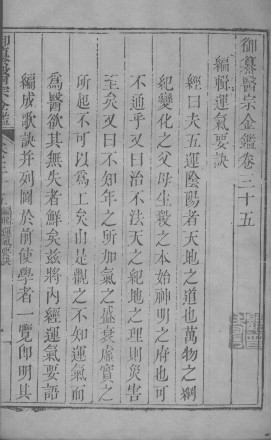 御纂醫宗金鑑卷三十五
編輯運氣要訣
經曰夫五運陰陽者天地之道也萬物之綱
紀變化之父母生殺之本始神明之府也可
不通乎又曰治不法天之紀地之理則災害
至矣又曰不知年之所加氣之盛衰虛實之
所起不可以為工矣由是觀之不知運氣而
為醫欲其無失者鮮矣茲將內經運氣要語
編成歌訣并列圖於前使學者一覽即明其
御纂醫宗金鑑